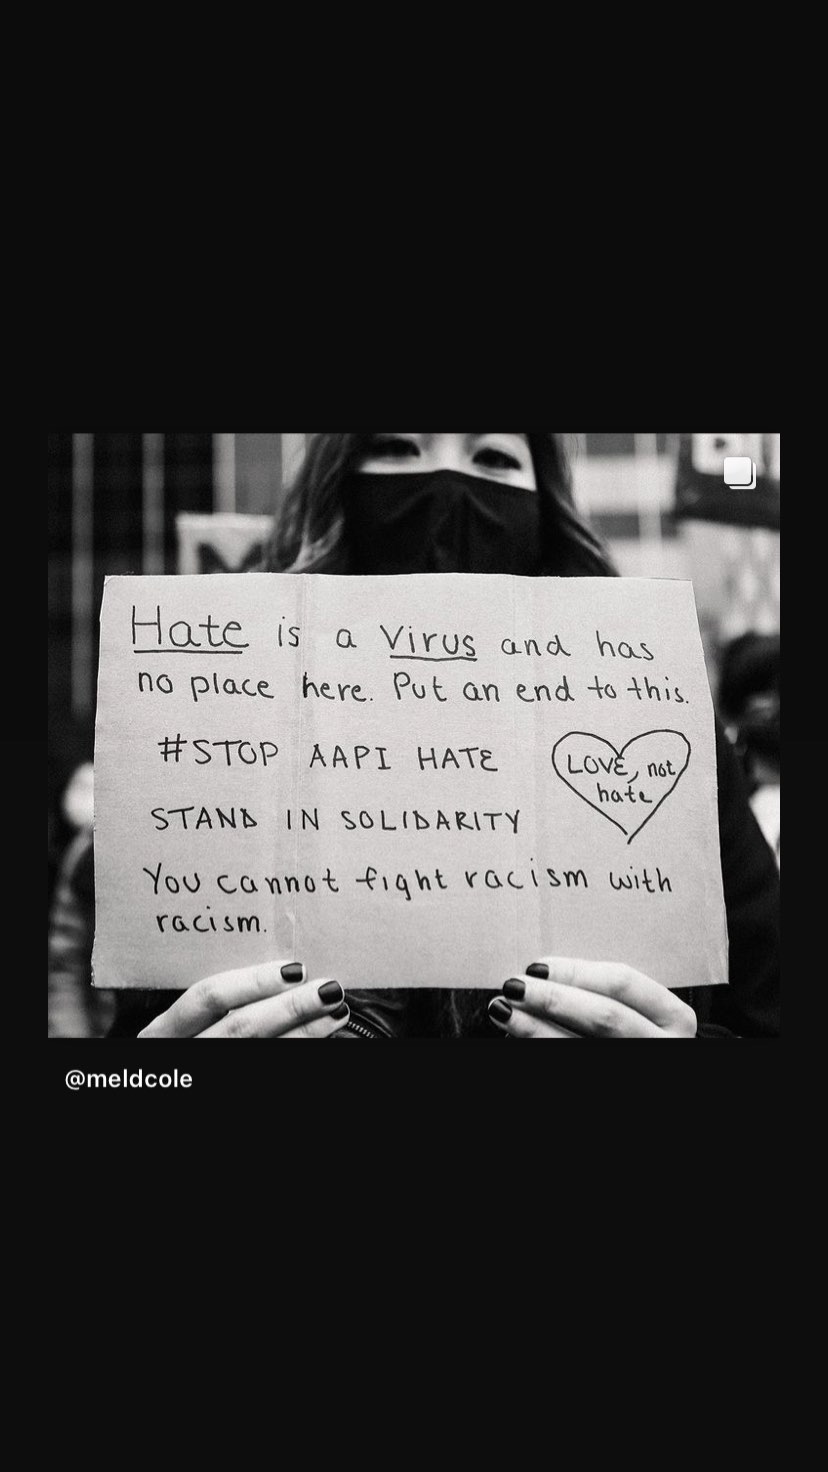 Hate is a Virus and has
no place here. Put an end to this.
#STOP AAPI HATE
LOVE, not
hate
STAND IN SOLIDARITY
You cannot fight racism with
racism.
@meldcole